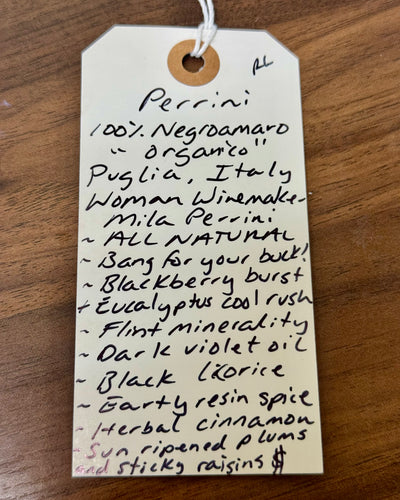 Perrini
100% Negroamaro
"organico"
Puglia, Italy
Woman Winemaker
Mila Perrini
~ ALL NATURAL
~ Bang for your buck!
~ Blackberry burst
~ Eucalyptus cool rush
~ Flint minerality
~ Dark violet oil
~ Black licorice
~ Earty resin spice
~ Herbal cinnamon
~ Sun ripened plums
and sticky raisins $